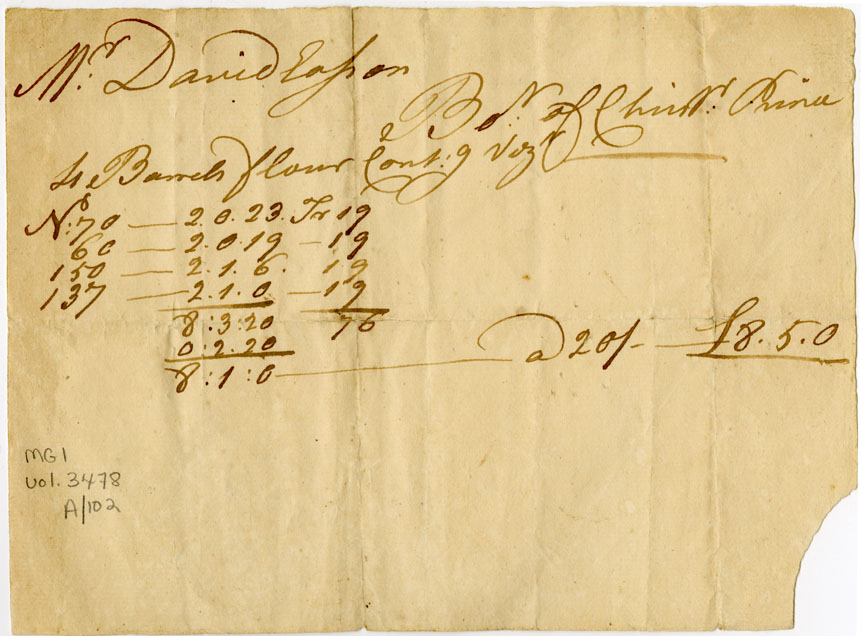 Mr. David Easson
Bot. of Christr. Prince
4 Barrels flour Contg. Vizt
No. 70 — 2.0.23. Tr 19
60 — 2.0.19 — 19
150 — 2.1.6. 19
137 — 2.1.0 — 19
8:3:20 76
0:2.20
8:1:0 — a 20/- — £8.5.0
MG1
vol. 3478
A/102